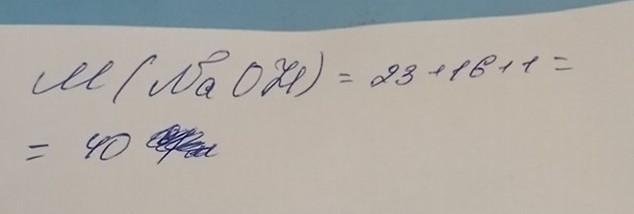 M(NaOH) = 23+16+1 =
= 40